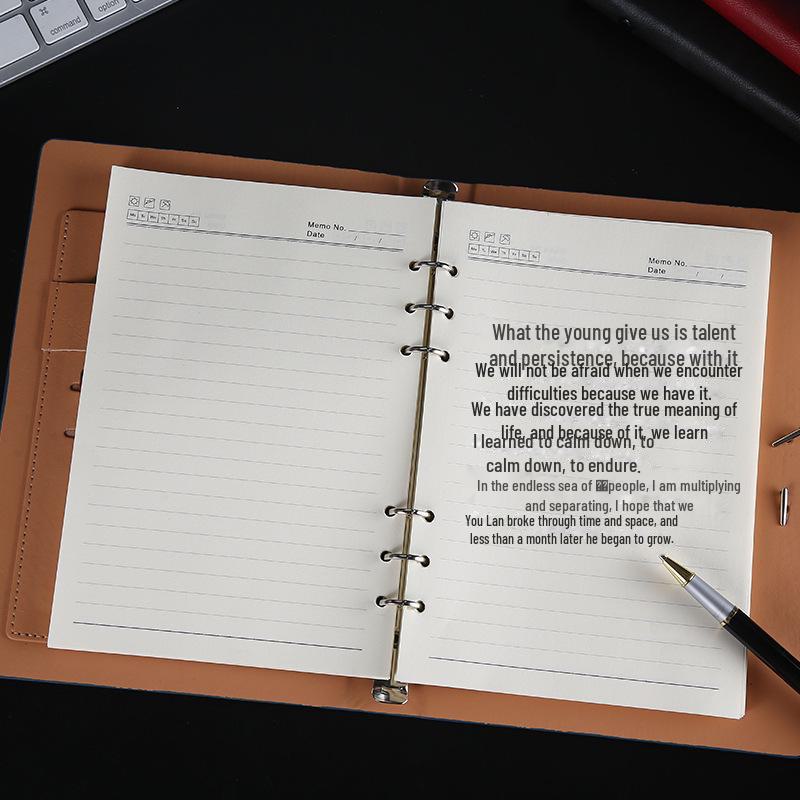 command
option
Mo Tu We Th Fr Sa Su
Memo No.
Date / /
Mo Tu We Th Fr Sa Su
Memo No.
Date / /
What the young give us is talent
and persistence, because with it
We will not be afraid when we encounter
difficulties because we have it.
We have discovered the true meaning of
life, and because of it, we learn
I learned to calm down, to
calm down, to endure.
In the endless sea of people, I am multiplying
and separating, I hope that we
You Lan broke through time and space, and
less than a month later he began to grow.